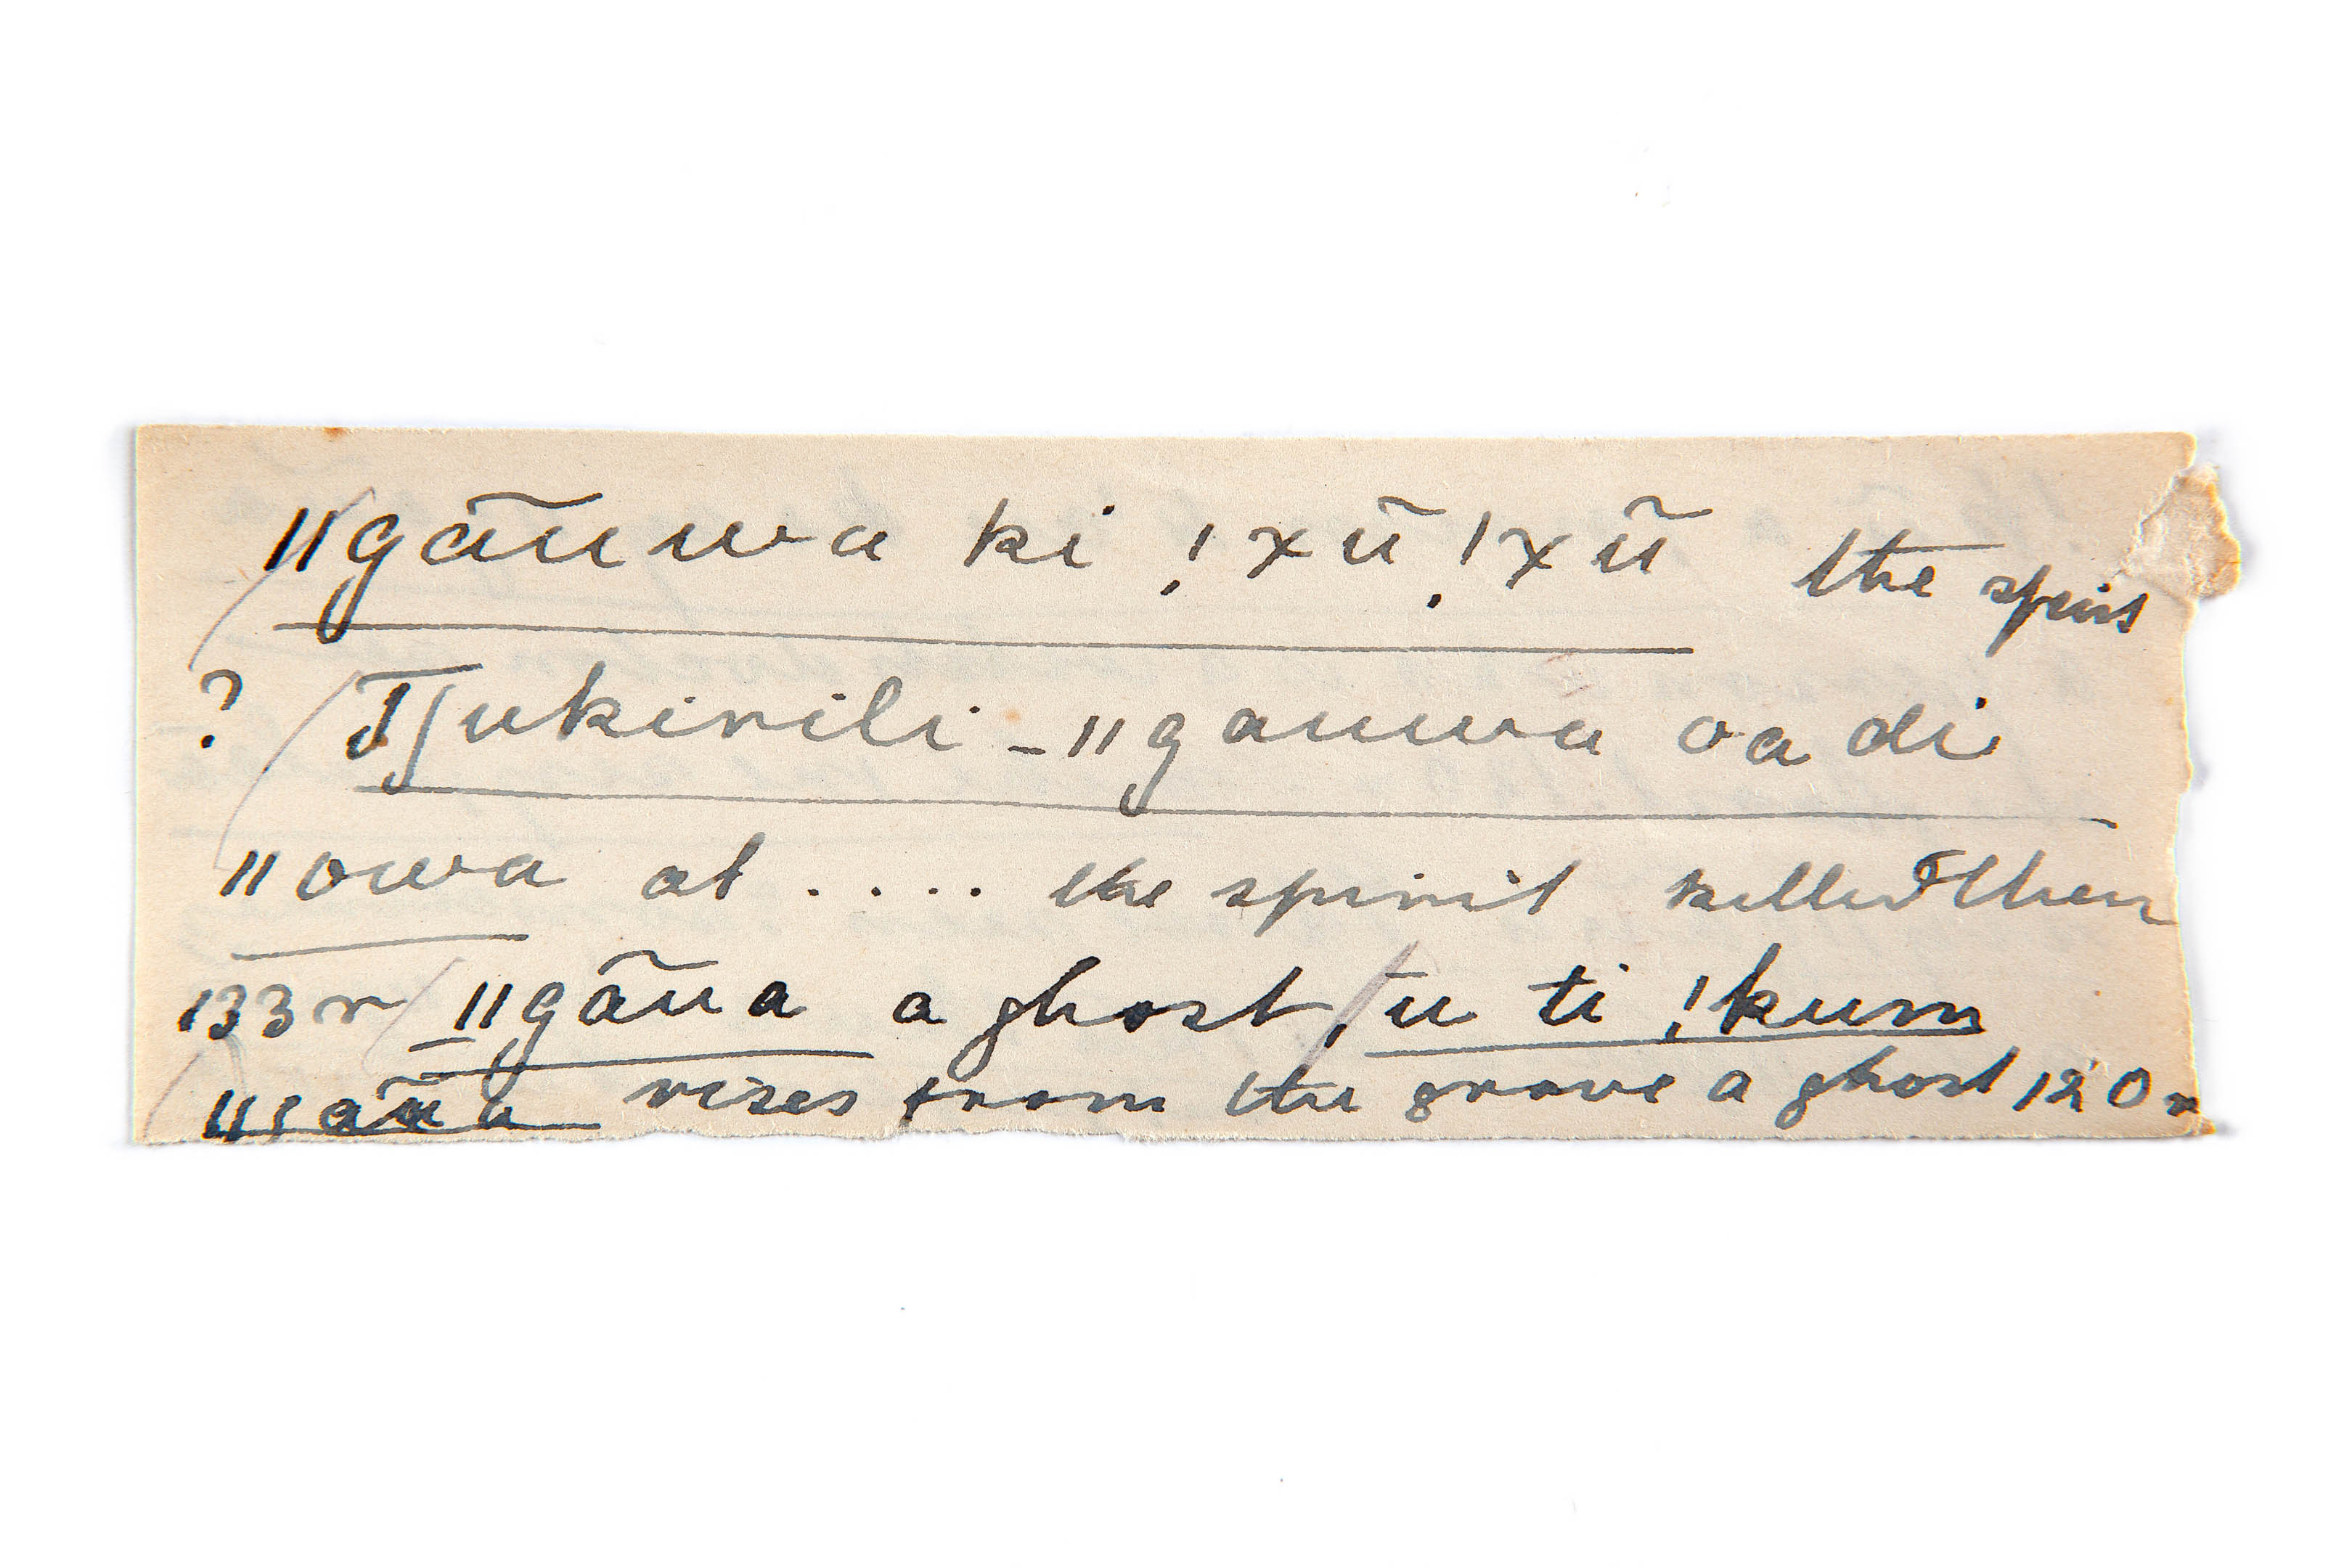 ǁgãuwa ki !xũ !xũ the spirit
? Tʃukirili - ǁgauwa oa di
ǁowa at .... the spirit killed then
133 r ǁgãua a ghost, u ti !kum
ǁgãũa rises from the grave a ghost 120 r